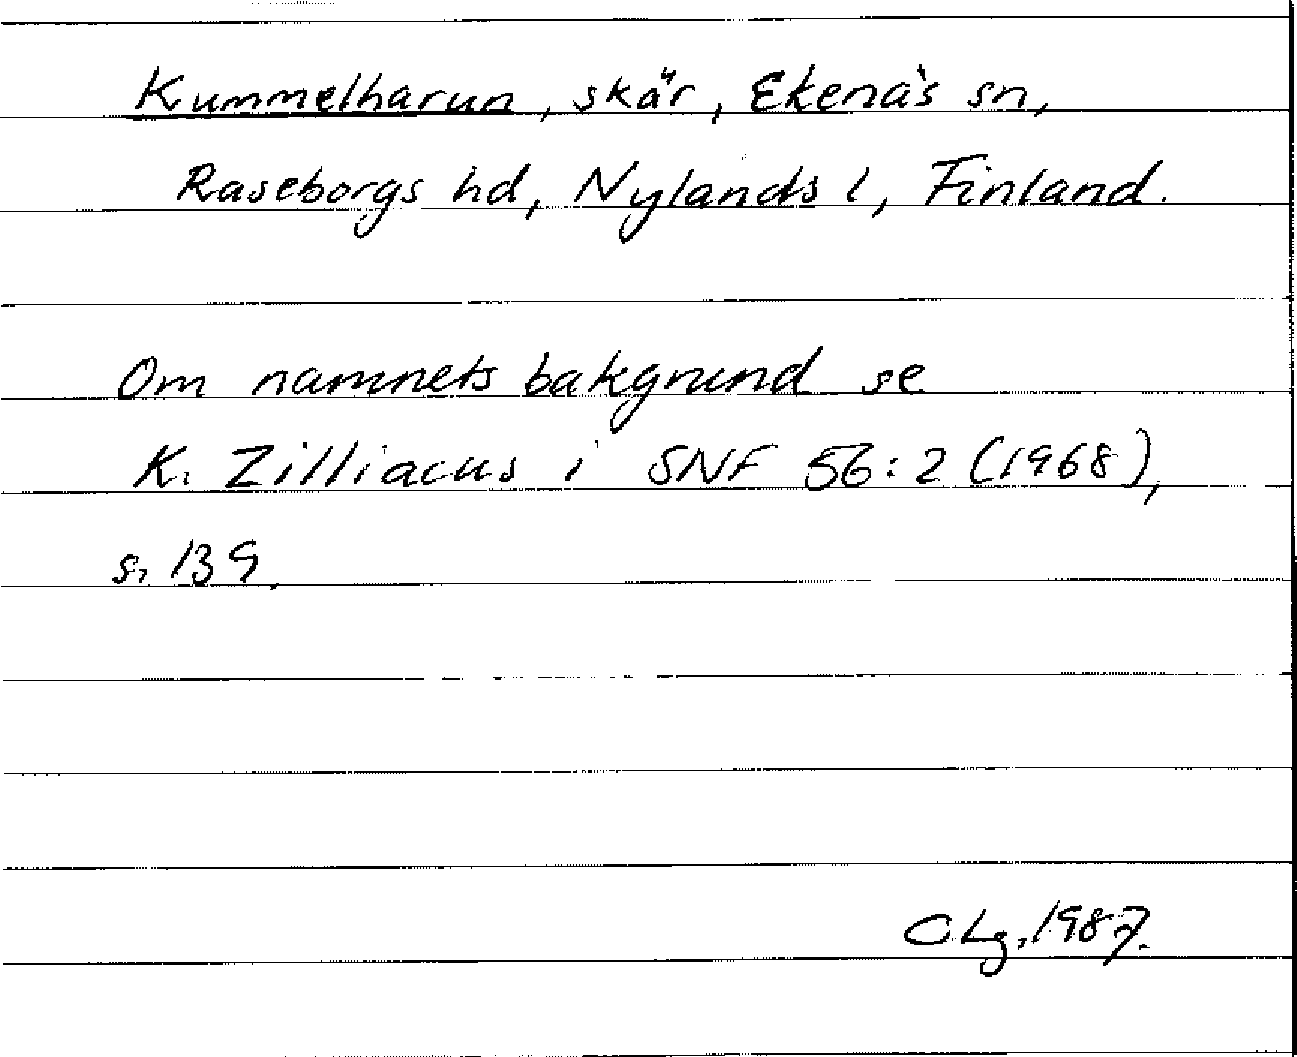 Kummelharun, skär, Ekenäs sn,
Raseborgs hd, Nylands l, Finland.
Om namnets bakgrund se
K. Zilliacus i SNF 56:2 (1968),
s. 139.
CLg, 1987.